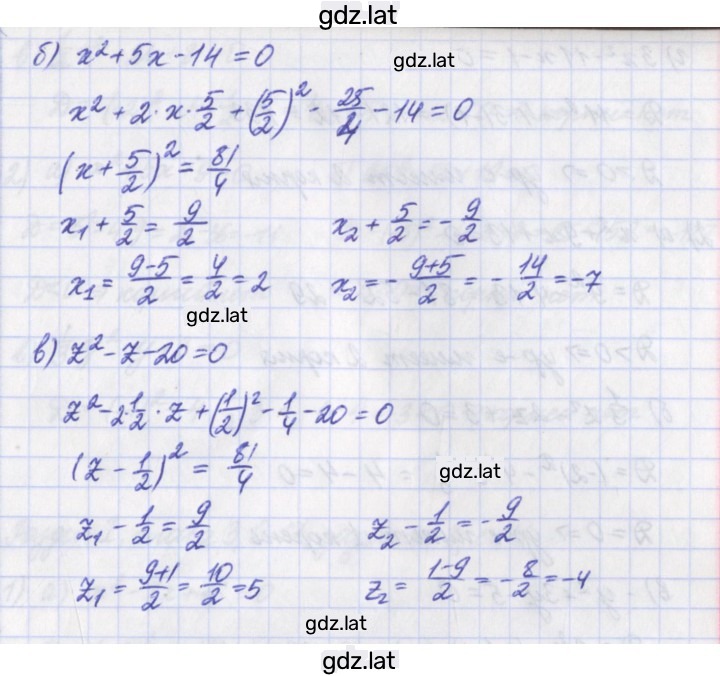 gdz.lat
б) x² + 5x - 14 = 0
gdz.lat
x² + 2·x·5/2 + (5/2)² - 25/4 - 14 = 0
(x + 5/2)² = 81/4
x₁ + 5/2 = 9/2    x₂ + 5/2 = -9/2
x₁ = (9-5)/2 = 4/2 = 2    x₂ = -(9+5)/2 = -14/2 = -7
gdz.lat
в) z² - z - 20 = 0
z² - 2 1/2·z + (1/2)² - 1/4 - 20 = 0
(z - 1/2)² = 81/4
gdz.lat
z₁ - 1/2 = 9/2    z₂ - 1/2 = -9/2
z₁ = (9+1)/2 = 10/2 = 5    z₂ = (1-9)/2 = -8/2 = -4
gdz.lat
gdz.lat